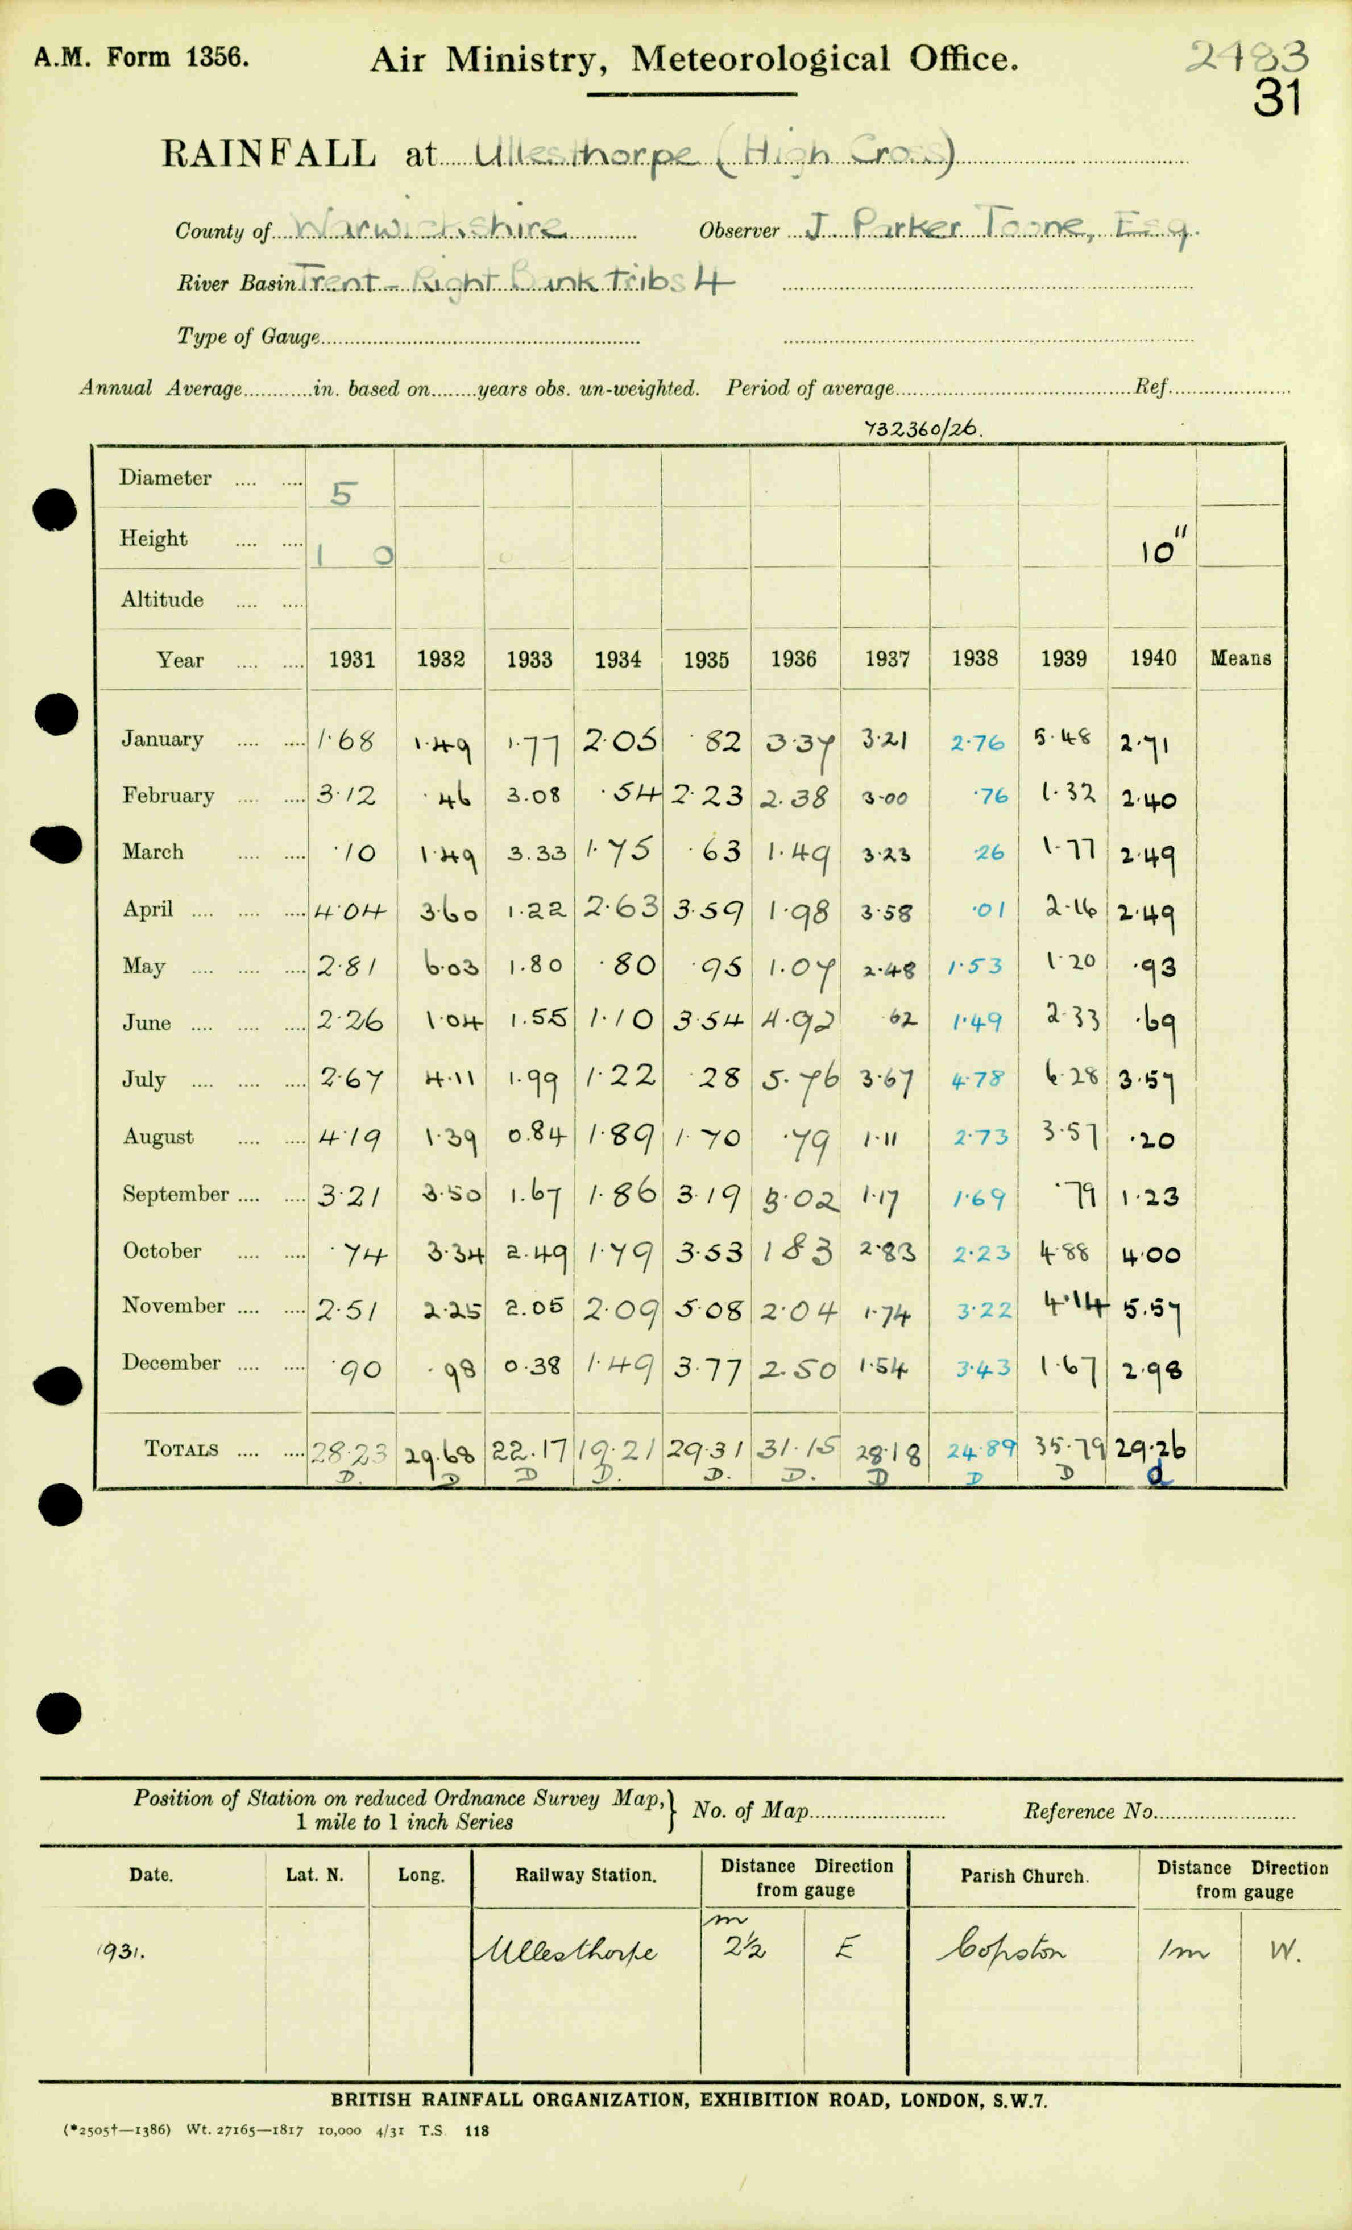 A.M. Form 1356. Air Ministry, Meteorological Office. 2483
31
RAINFALL at Ullesthorpe (High Cross)
County of Warwickshire Observer J. Parker Toone, Esq.
River Basin Trent - Right Bank Tribs 4
Type of Gauge
Annual Average in. based on years obs. un-weighted. Period of average Ref.
732360/26.
Diameter 5
Height 1 0 10"
Altitude
Year 1931 1932 1933 1934 1935 1936 1937 1938 1939 1940 Means
January 1.68 1.49 1.77 2.05 .82 3.37 3.21 2.76 5.48 2.71
February 3.12 .46 3.08 .54 2.23 2.38 3.00 .76 1.32 2.40
March .10 1.49 3.33 1.75 .63 1.49 3.23 .26 1.77 2.49
April 4.04 3.60 1.22 2.63 3.59 1.98 3.58 .01 2.16 2.49
May 2.81 6.03 1.80 .80 .95 1.07 2.48 1.53 1.20 .93
June 2.26 1.04 1.55 1.10 3.54 4.92 .62 1.49 2.33 .69
July 2.67 4.11 1.99 1.22 .28 5.76 3.67 4.78 6.28 3.57
August 4.19 1.39 0.84 1.89 1.70 .79 1.11 2.73 3.57 .20
September 3.21 3.50 1.67 1.86 3.19 3.02 1.17 1.69 .79 1.23
October .74 3.34 2.49 1.79 3.53 1 83 2.83 2.23 4.88 4.00
November 2.51 2.25 2.05 2.09 5.08 2.04 1.74 3.22 4.14 5.57
December .90 .98 0.38 1.49 3.77 2.50 1.54 3.43 1.67 2.98
TOTALS 28.23 29.68 22.17 19.21 29.31 31.15 28.18 24.89 35.79 29.26
D. D D D. D. D. D D D d
Position of Station on reduced Ordnance Survey Map, } No. of Map Reference No.
1 mile to 1 inch Series
Date. Lat. N. Long. Railway Station. Distance Direction from gauge Parish Church. Distance Direction from gauge
1931. Ullesthorpe m 2½ E Copston 1m W.
BRITISH RAINFALL ORGANIZATION, EXHIBITION ROAD, LONDON, S.W.7.
(*2505†—1386) Wt. 27165—1817 10,000 4/31 T.S. 118